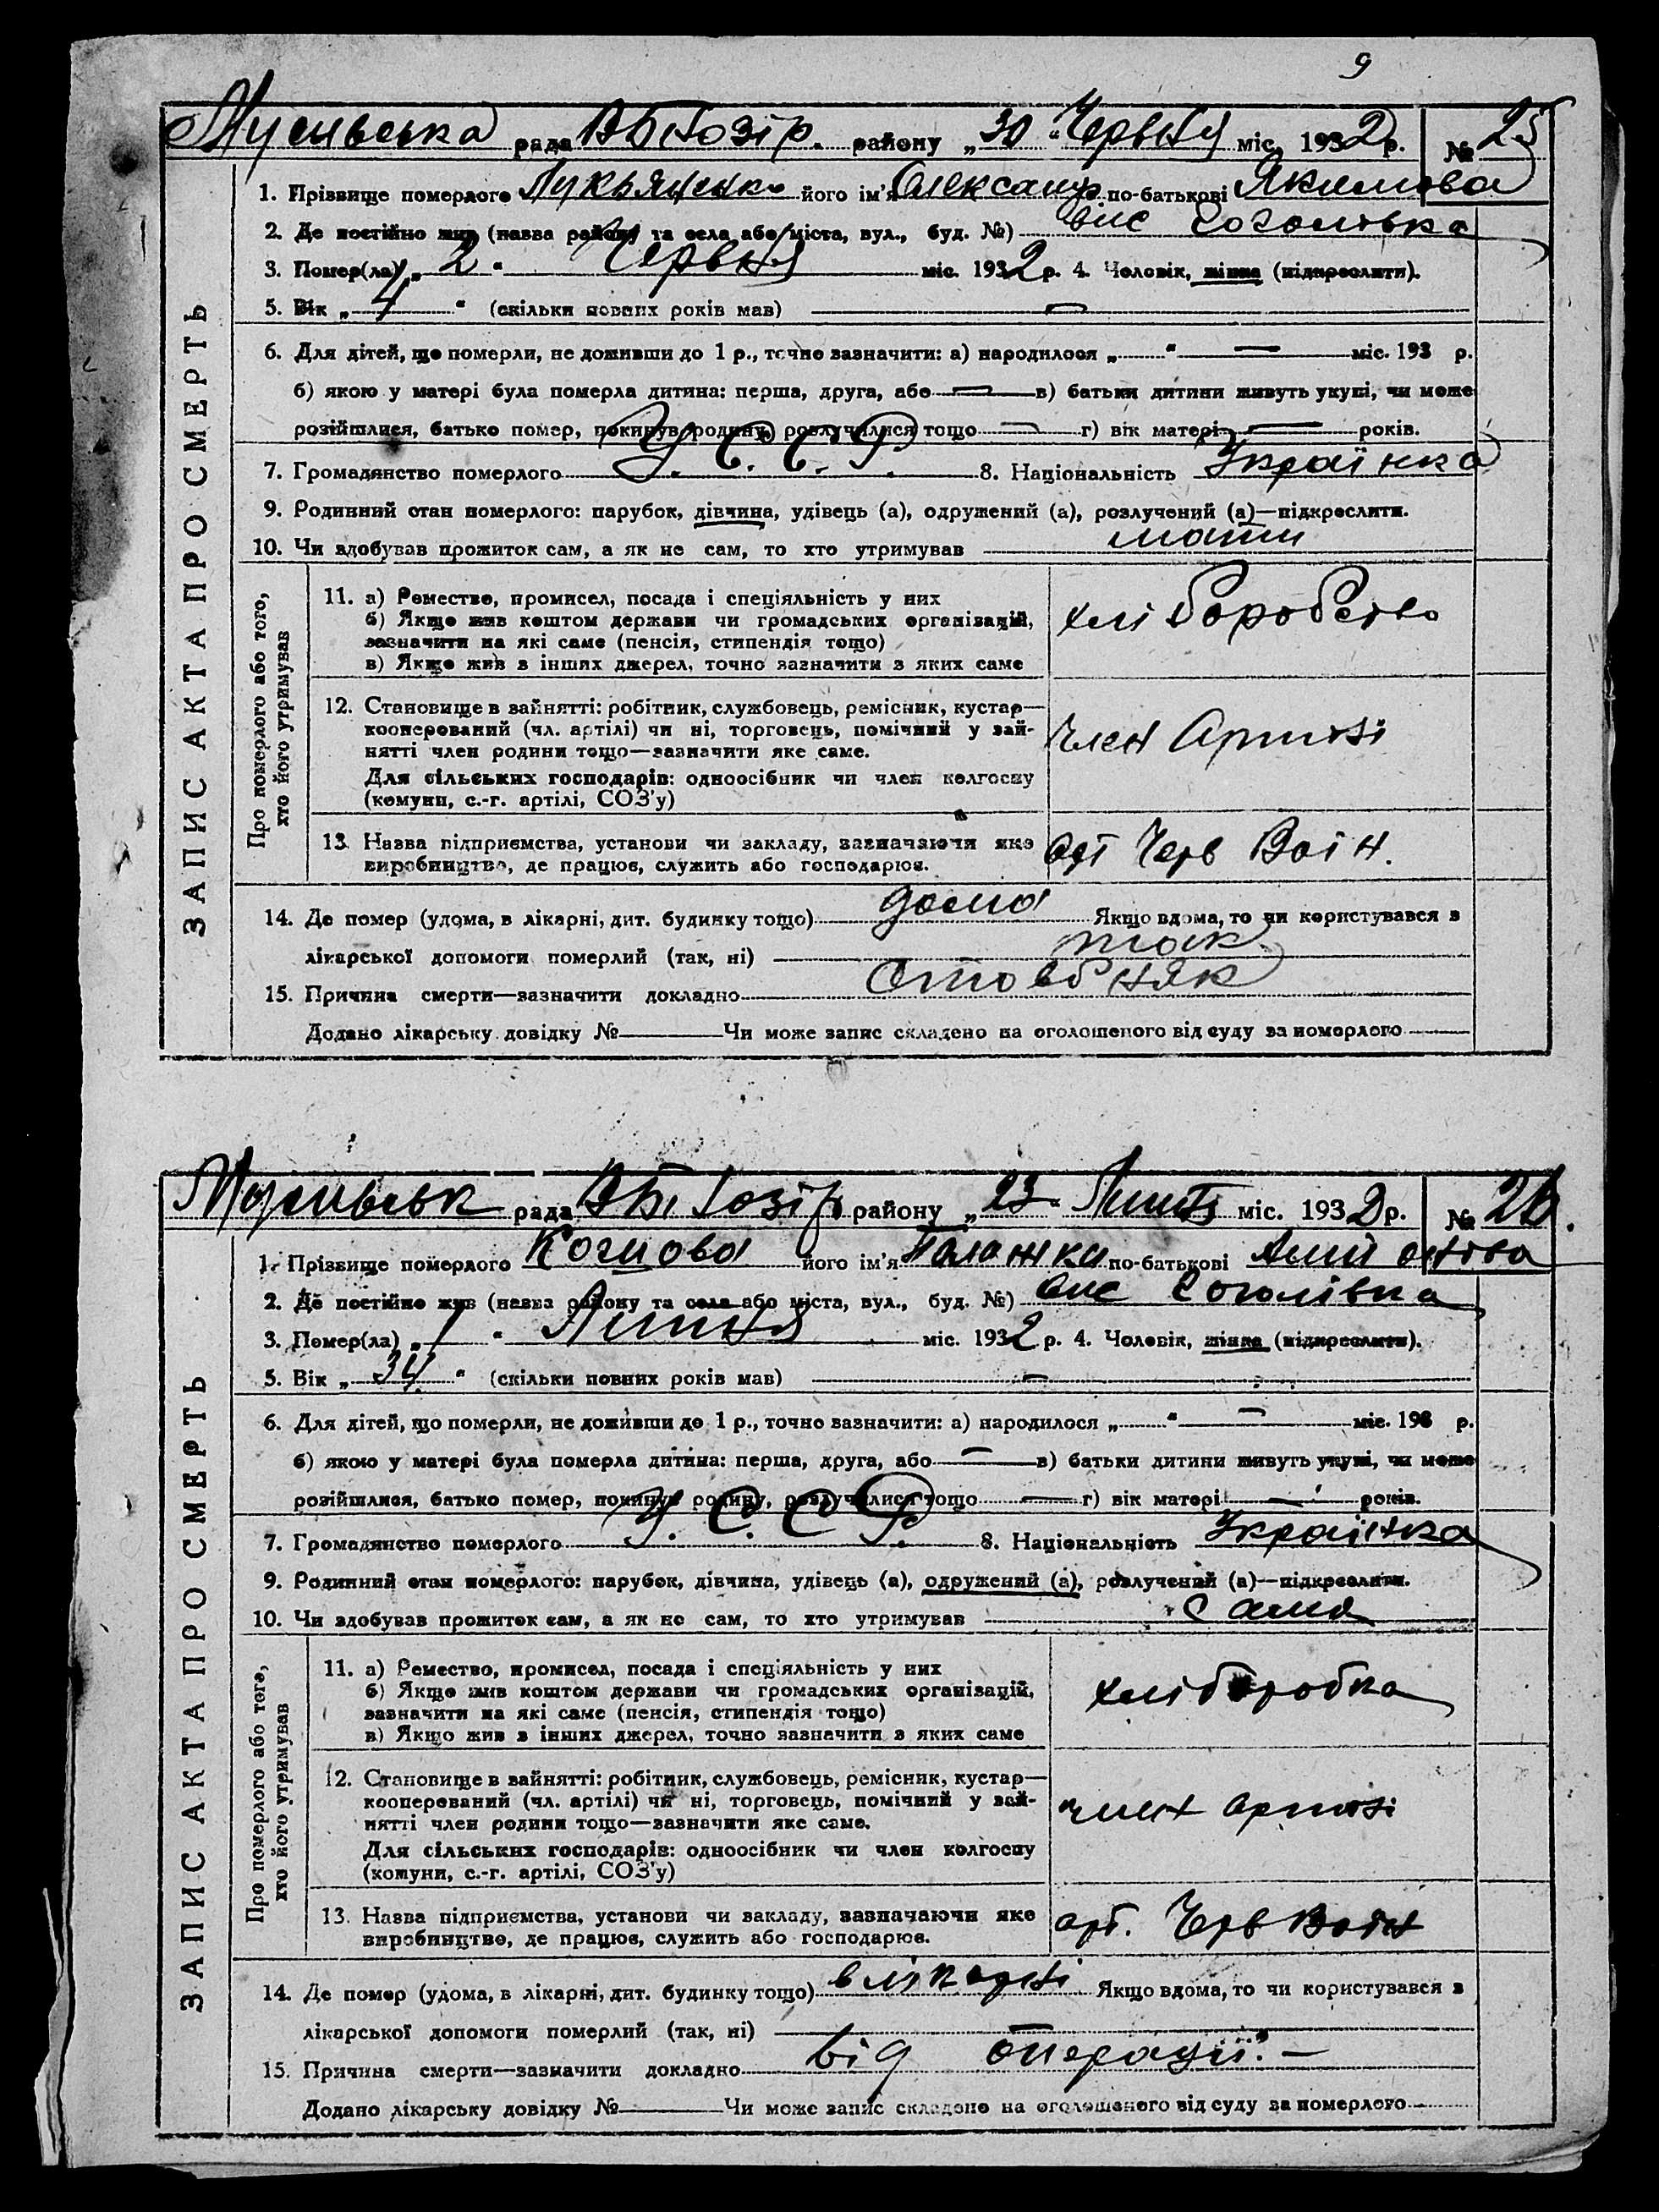 9
Мусівська рада В Багозір. району „30“ Червня міс. 1932 р. № 25
1. Прізвище померлого Лукьяненко його ім'я Олександр по-батькові Якимова
2. Де постійно жив (назва району та села або міста, вул., буд. №) вис Соколівка
3. Помер(ла) „2“ Червня міс. 1932 р. 4. Чоловік, жінка (підкреслити).
5. Вік „4“ (скільки повних років мав) —
6. Для дітей, що померли, не доживши до 1 р., точно зазначити: а) народилося „ “ — міс. 193 р.
б) якою у матері була померла дитина: перша, друга, або — в) батьки дитини живуть укупі, чи може
розійшлися, батько помер, покинув родину, розлучилися тощо — г) вік матері — років.
7. Громадянство померлого У. С. С. Р. 8. Національність Українка
9. Родинний стан померлого: парубок, дівчина, удівець (а), одружений (а), розлучений (а)—підкреслити.
10. Чи здобував прожиток сам, а як не сам, то хто утримував мати
ЗАПИС АКТА ПРО СМЕРТЬ
Про померлого або того,
хто його утримував
11. а) Ремество, промисел, посада і спеціяльність у них
б) Якщо жив коштом держави чи громадських організацій,
зазначити на які саме (пенсія, стипендія тощо)
в) Якщо жив з інших джерел, точно зазначити з яких саме
хліборобство
12. Становище в зайнятті: робітник, службовець, ремісник, кустар—
кооперований (чл. артілі) чи ні, торговець, помічний у зай-
нятті член родини тощо—зазначити яке саме.
Для сільських господарів: одноосібник чи член колгоспу
(комуни, с.-г. артілі, СОЗ'у)
член Артілі
13. Назва підприємства, установи чи закладу, зазначаючи яке
виробництво, де працює, служить або господарює.
арт Черв Воїн.
14. Де помер (удома, в лікарні, дит. будинку тощо) дома Якщо вдома, то чи користувався з
лікарської допомоги померлий (так, ні) так
15. Причина смерти—зазначити докладно Стовбняк
Додано лікарську довідку № Чи може запис складено на оголошеного від суду за померлого
Мусівськ рада В Б. Гозір району „23“ Липня міс. 1932 р. № 26.
1. Прізвище померлого його ім'я Палажка по-батькові
2. Де постійно жив (назва району та села або міста, вул., буд. №) вис Соколівка
3. Помер(ла) „1“ Липня міс. 1932 р. 4. Чоловік, жінка (підкреслити).
5. Вік „34“ (скільки повних років мав) —
6. Для дітей, що померли, не доживши до 1 р., точно зазначити: а) народилося „ “ — міс. 193 р.
б) якою у матері була померла дитина: перша, друга, або — в) батьки дитини живуть укупі, чи може
розійшлися, батько помер, покинув родину, розлучилися тощо — г) вік матері — років.
7. Громадянство померлого У. С. С. Р. 8. Національність Українка
9. Родинний стан померлого: парубок, дівчина, удівець (а), одружений (а), розлучений (а)—підкреслити.
10. Чи здобував прожиток сам, а як не сам, то хто утримував сама
ЗАПИС АКТА ПРО СМЕРТЬ
Про померлого або того,
хто його утримував
11. а) Ремество, промисел, посада і спеціяльність у них
б) Якщо жив коштом держави чи громадських організацій,
зазначити на які саме (пенсія, стипендія тощо)
в) Якщо жив з інших джерел, точно зазначити з яких саме
хліборобка
12. Становище в зайнятті: робітник, службовець, ремісник, кустар—
кооперований (чл. артілі) чи ні, торговець, помічний у зай-
нятті член родини тощо—зазначити яке саме.
Для сільських господарів: одноосібник чи член колгоспу
(комуни, с.-г. артілі, СОЗ'у)
член артілі
13. Назва підприємства, установи чи закладу, зазначаючи яке
виробництво, де працює, служить або господарює.
арт. Черв Воїн
14. Де помер (удома, в лікарні, дит. будинку тощо) в лікарні Якщо вдома, то чи користувався з
лікарської допомоги померлий (так, ні)
15. Причина смерти—зазначити докладно від операції.—
Додано лікарську довідку № Чи може запис складено на оголошеного від суду за померлого